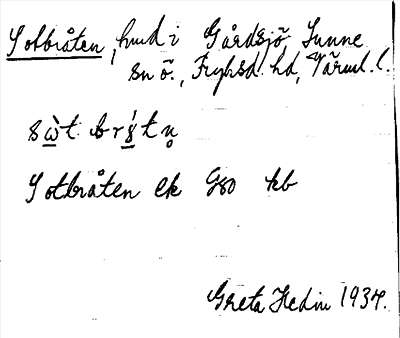 Sotbråten, hmd i Gårdsjö Sunne
sn ö., Fryksd. hd, Värml. l.
Sotbråten ek G80 kb
Greta Hedin 1934.